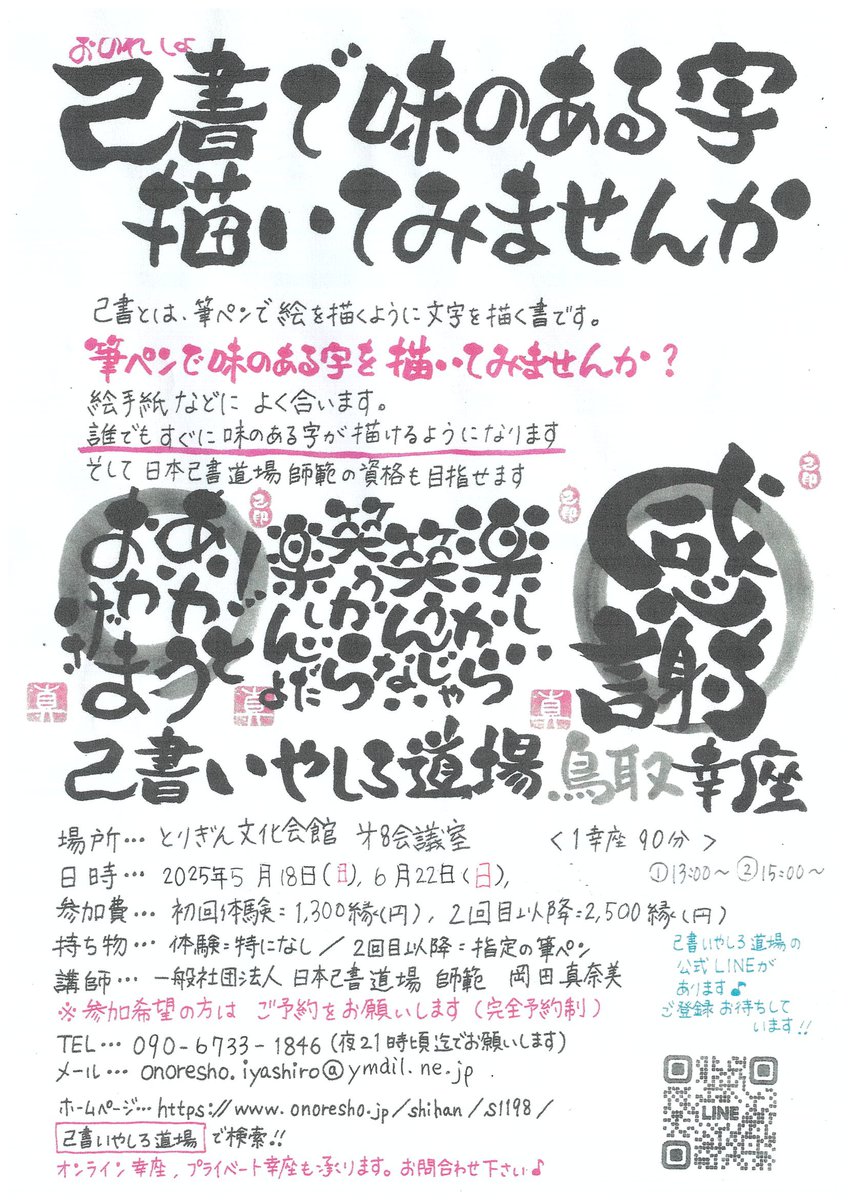 おのれしょ
己書で味のある字
描いてみませんか
己書とは、筆ペンで絵を描くように文字を描く書です。
筆ペンで味のある字を描いてみませんか?
絵手紙などに よく合います。
誰でもすぐに味のある字が描けるようになります
そして日本己書道場師範の資格も目指せます
ありがとう!
おかげさま
楽しいから
笑うんじゃない
笑うから
楽しんだよ
感謝
己書いやしろ道場 鳥取幸座
場所… とりぎん文化会館 才8会議室 <1幸座 90分>
日時… 2025年5月18日(日), 6月22日(日), ①13:00~ ②15:00~
参加費… 初回体験=1,300縁(円), 2回目以降=2,500縁(円)
持ち物… 体験=特になし/2回目以降=指定の筆ペン
講師… 一般社団法人 日本己書道場 師範 岡田真奈美
※参加希望の方は ご予約をお願いします(完全予約制)
己書いやしろ道場の
公式LINEが
あります♪
ご登録お待ちして
います!!
TEL… 090-6733-1846(夜21時頃迄でお願いします)
メール… onoresho.iyashiro@ymdil.ne.jp
ホームページ…https://www.onoresho.jp/shihan/s1198/
己書いやしろ道場 で検索!!
オンライン幸座, プライベート幸座も承ります。お問合わせ下さい♪
LINE